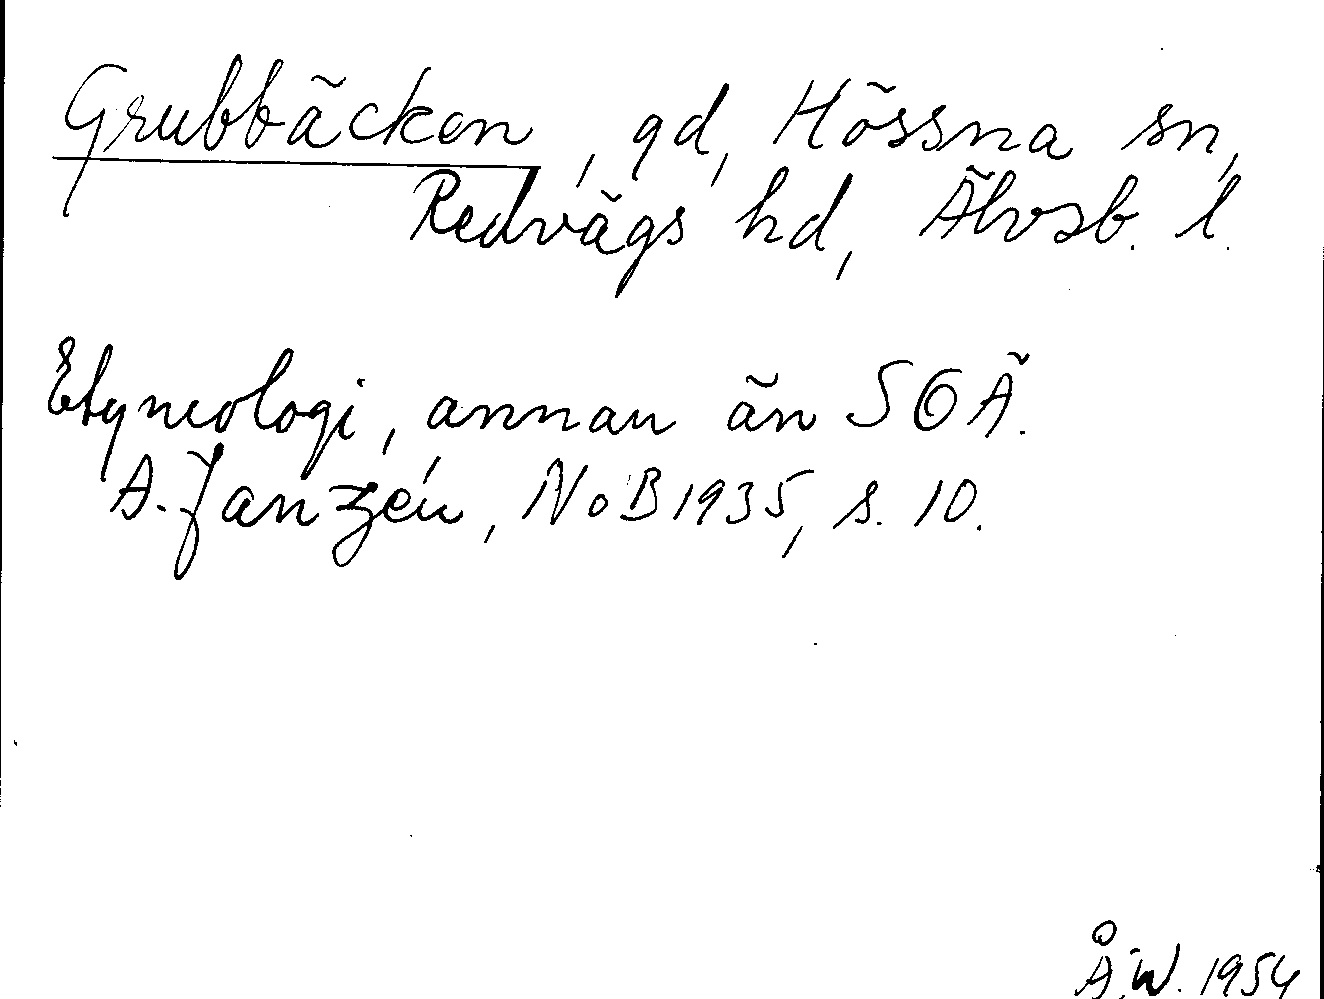 Grubbäcken, gd, Hössna sn,
Redvägs hd, Älvsb. l.
Etymologi, annan än SOÄ.
A. Janzén, NoB 1935, s. 10.
Å.W. 1954